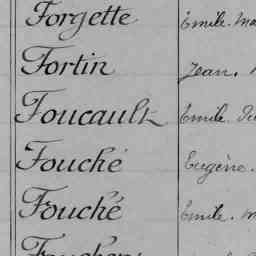 Forgette Émile.
Fortin Jean.
Foucault Émile.
Fouché Eugène.
Fouché Émile.